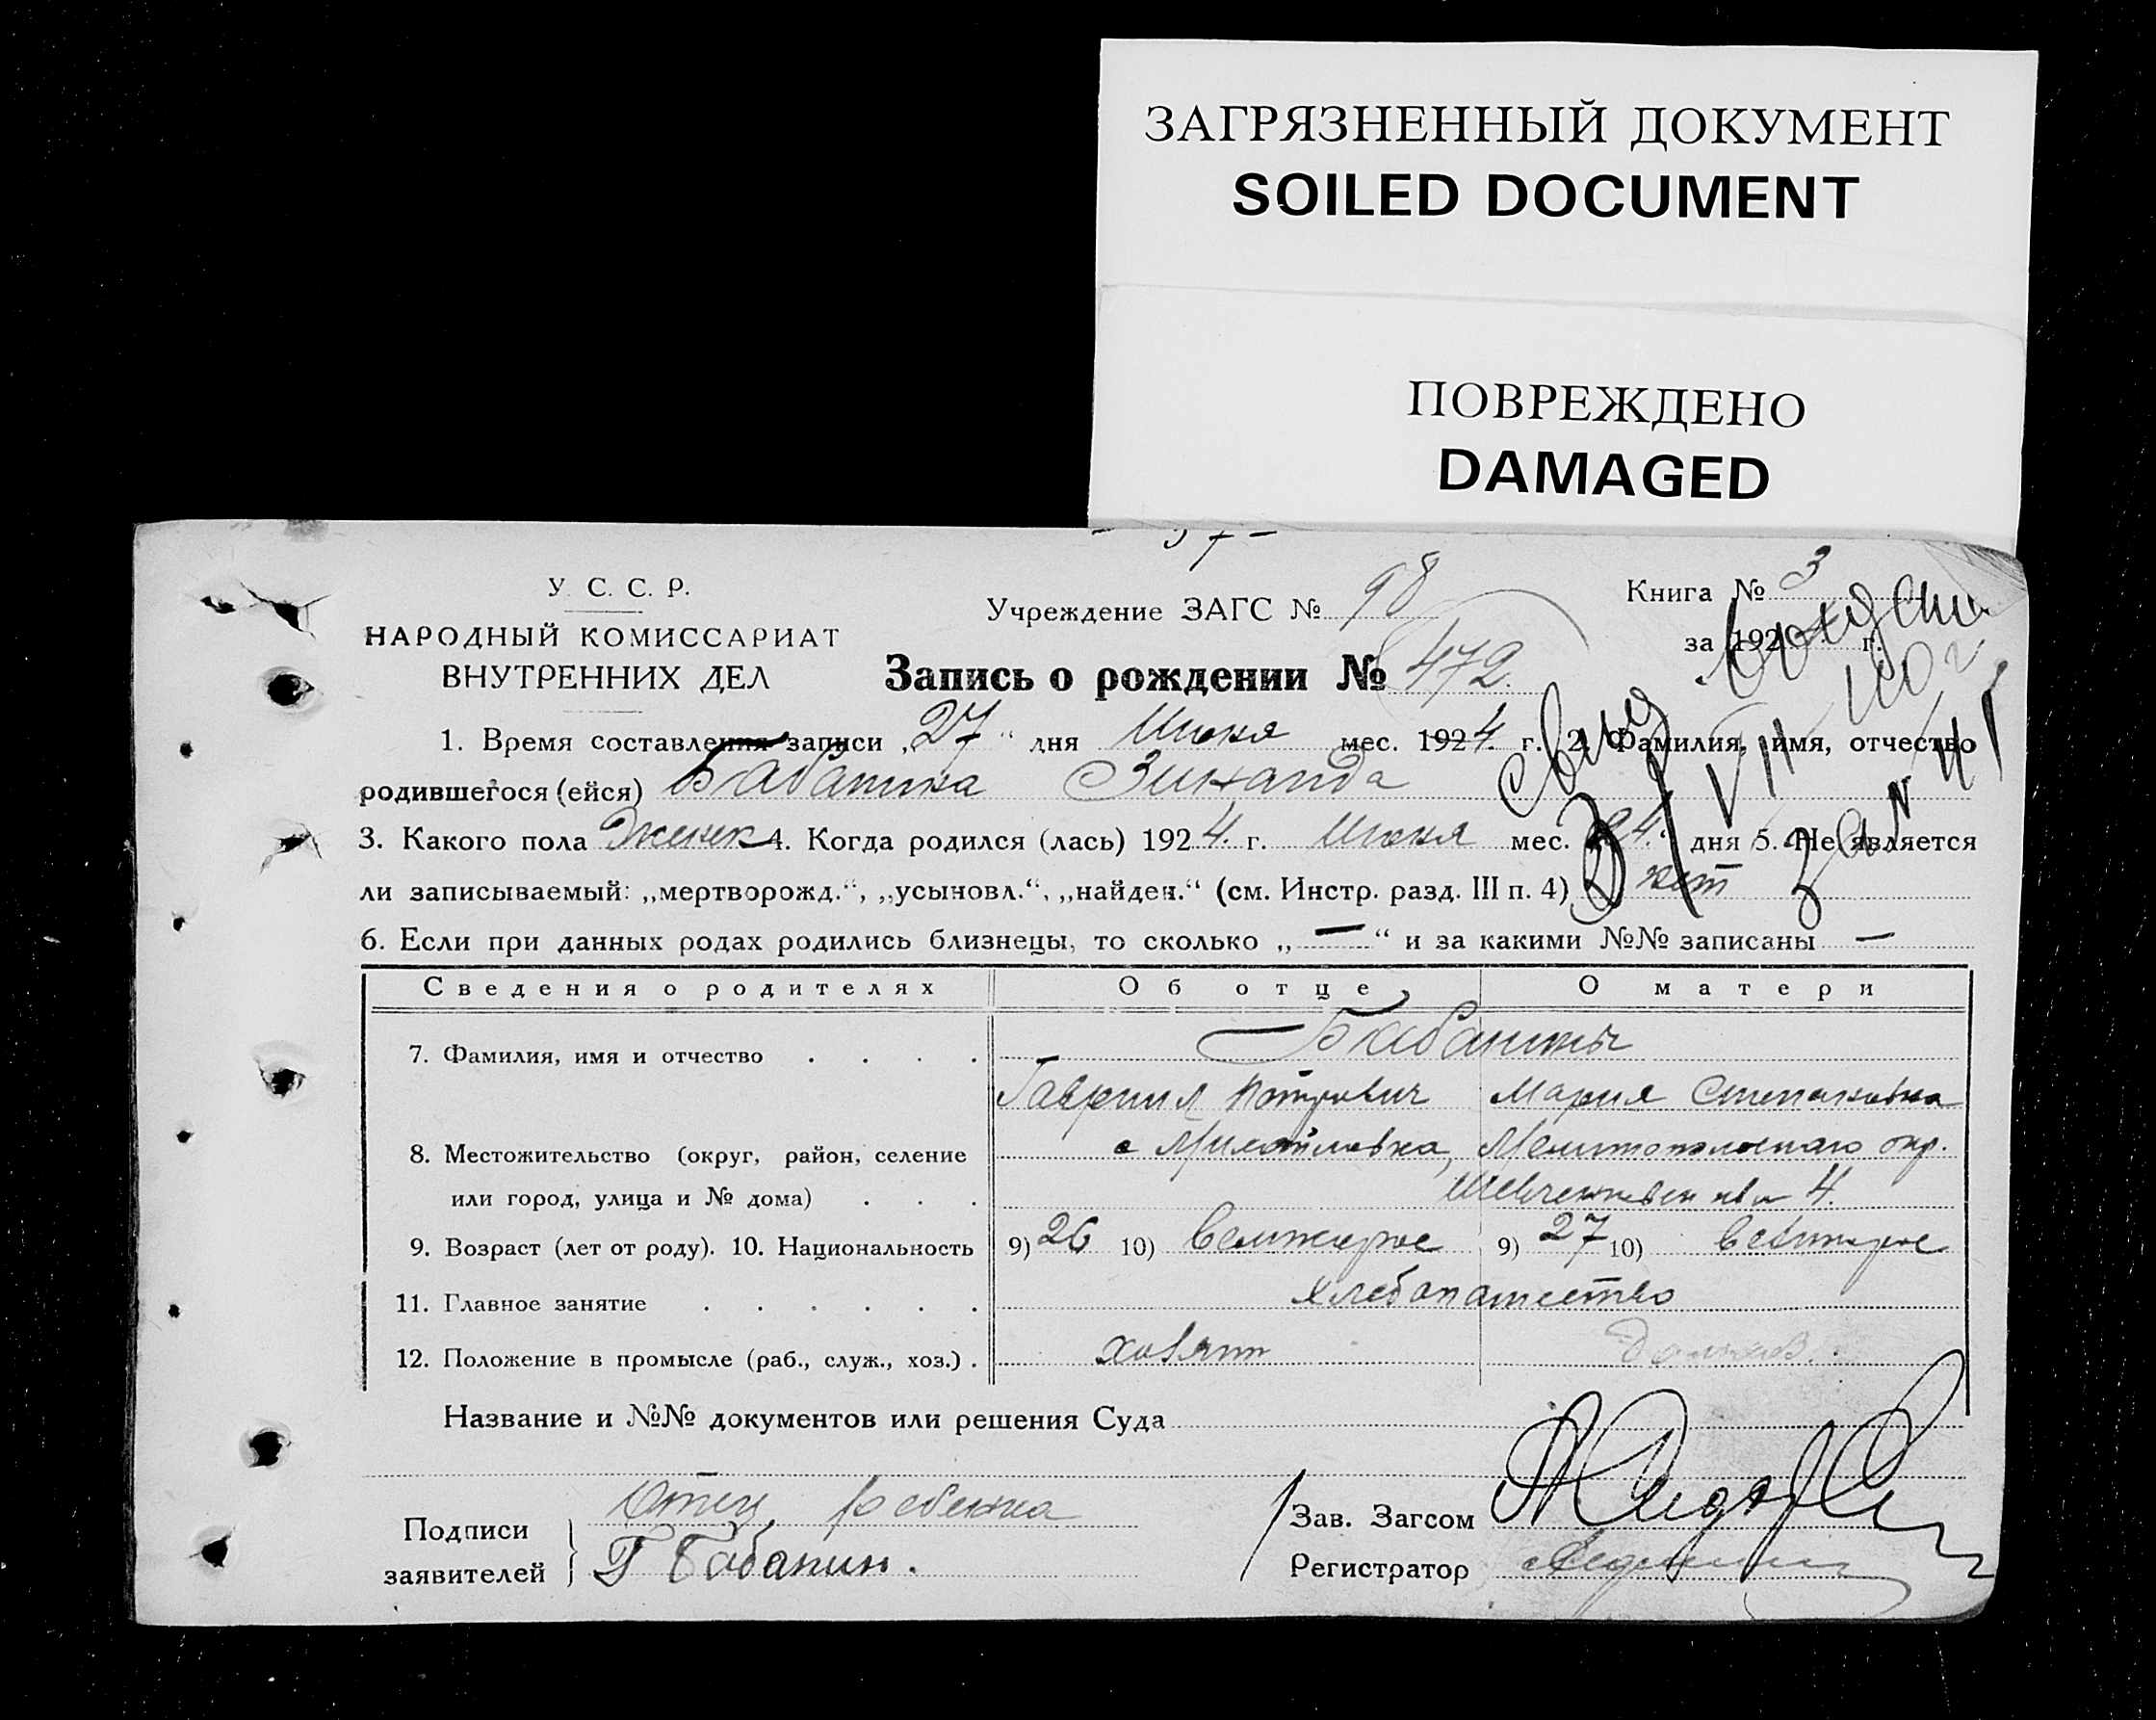 ЗАГРЯЗНЕННЫЙ ДОКУМЕНТ
SOILED DOCUMENT
ПОВРЕЖДЕНО
DAMAGED
У. С. С. Р.
НАРОДНЫЙ КОМИССАРИАТ
ВНУТРЕННИХ ДЕЛ
Учреждение ЗАГС № 98
Книга № 3
за 192 г.
Запись о рождении № 472
1. Время составления записи „27“ дня Июня мес. 1924 г. 2. Фамилия, имя, отчество
родившегося (ейся) Бабанина Зинаида
3. Какого пола Женск 4. Когда родился (лась) 1924 г. Июня мес. 24 дня 5. Не является
ли записываемый: „мертворожд.“, „усыновл.“, „найден.“ (см. Инстр. разд. III п. 4) нет
6. Если при данных родах родились близнецы, то сколько „—“ и за какими №№ записаны —
Сведения о родителях Об отце О матери
7. Фамилия, имя и отчество . . . . Бабанины
Гавриил Петрович Мария Степановна
8. Местожительство (округ, район, селение с Михайловка, Мелитопольского окр.
или город, улица и № дома) . . . 4.
9. Возраст (лет от роду). 10. Национальность 9) 26 10) 9) 27 10)
11. Главное занятие . . . . . . хлебопашество
12. Положение в промысле (раб., служ., хоз.) . хозяин
Название и №№ документов или решения Суда
Подписи заявителей } Отец ребенка
Г Бабанин.
Зав. Загсом
Регистратор